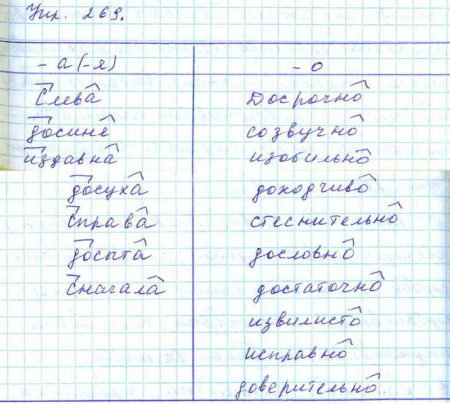 Упр. 269.
- а (-я) - о
Слева Досрочно
досиня созвучно
издавна изобильно
досуха доходчиво
справа стеснительно
досыта дословно
сначала достаточно
извилисто
исправно
доверительно